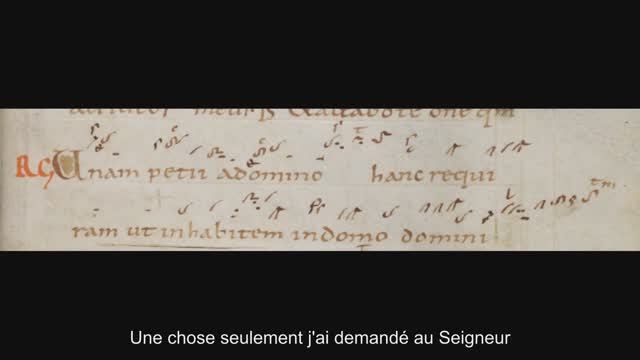 RG Unam petii a domino hanc requi
ram ut inhabitem in domo domini
Une chose seulement j'ai demandé au Seigneur